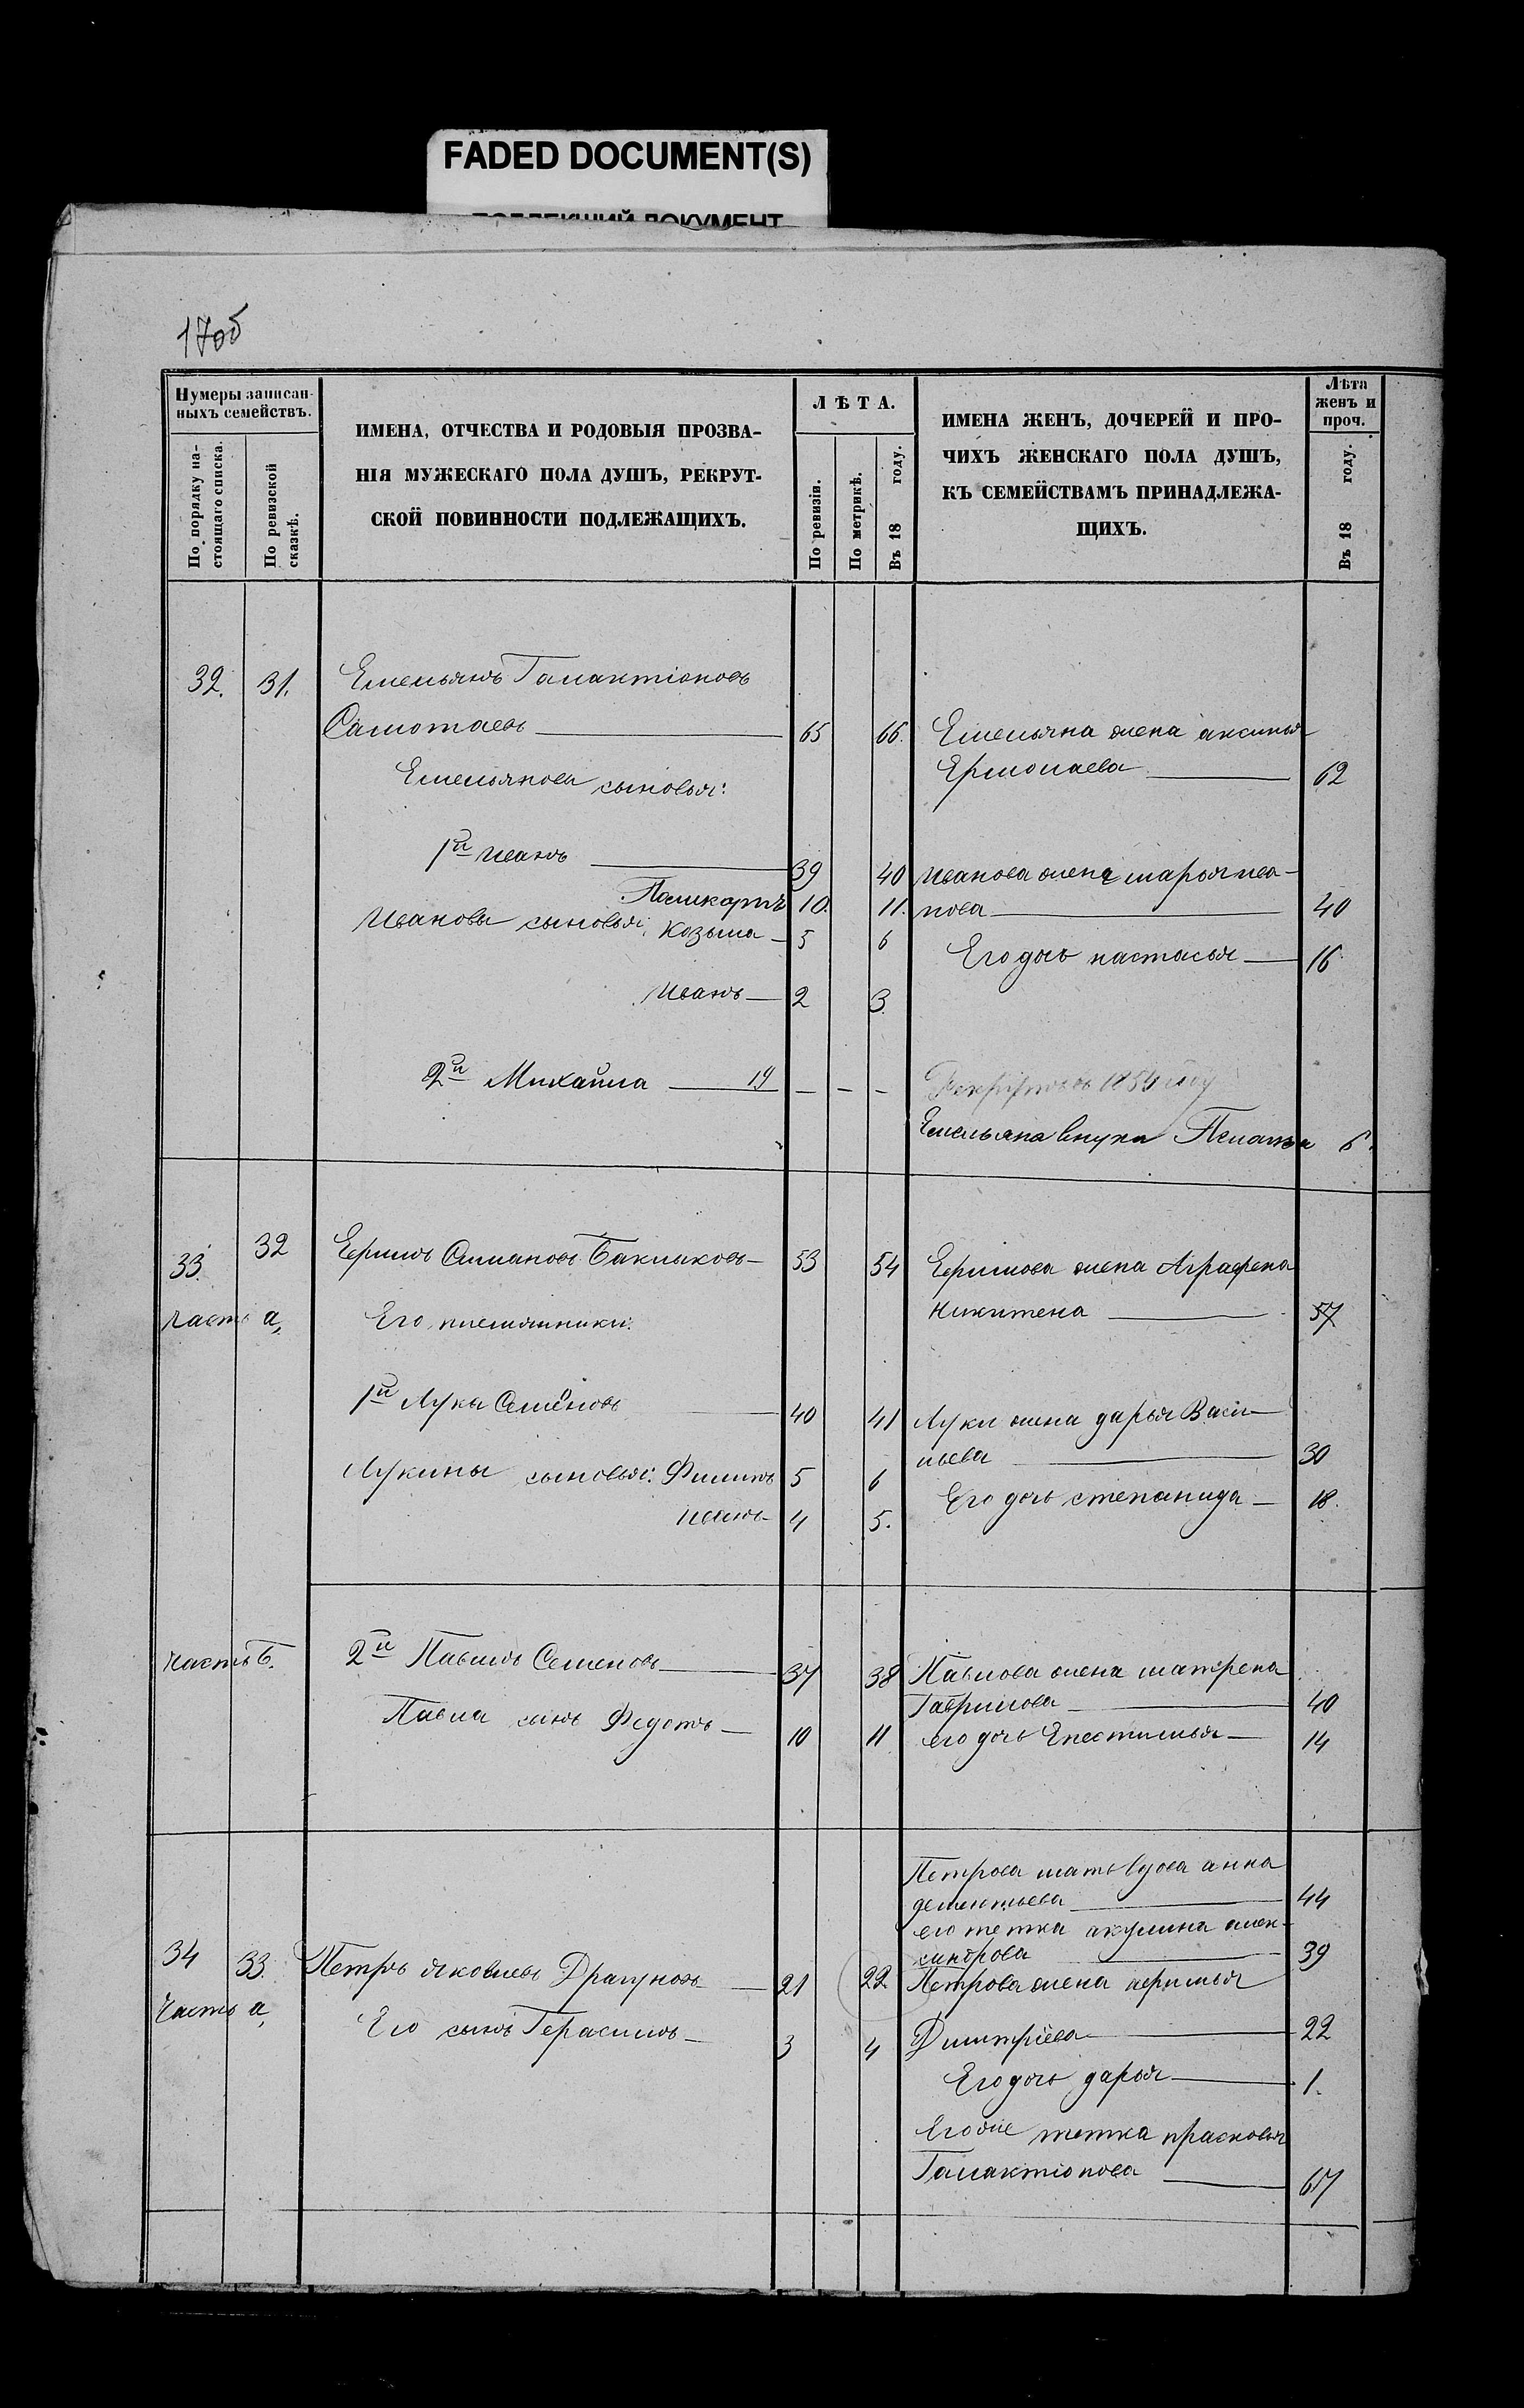 FADED DOCUMENT(S)
170б
Нумеры записан-
ныхъ семействъ.
По порядку на-
стоящаго списка.
По ревизской
сказкѣ.
ИМЕНА, ОТЧЕСТВА И РОДОВЫЯ ПРОЗВА-
НІЯ МУЖЕСКАГО ПОЛА ДУШЪ, РЕКРУТ-
СКОЙ ПОВИННОСТИ ПОДЛЕЖАЩИХЪ.
ЛѢТА.
По ревизіи.
По метрикѣ.
Въ 18 году.
ИМЕНА ЖЕНЪ, ДОЧЕРЕЙ И ПРО-
ЧИХЪ ЖЕНСКАГО ПОЛА ДУШЪ,
КЪ СЕМЕЙСТВАМЪ ПРИНАДЛЕЖА-
ЩИХЪ.
Лѣта
женъ и
проч.
Въ 18 году.
32. 31. Емельянъ Галактіоновъ
Самотаевъ 65 66. Емельяна жена аксинья
Ермолаева 62
Емельяновы сыновья:
1й Иванъ 39 40 Иванова жена марья ива-
Поликарпъ 10. 11. нова 40
Ивановы сыновья: Козьма 5 6
Его дочь настасья 16
Иванъ 2 3.
2й Михайла 19 - - -
1854 году
Емельяна внука Пелагея 6.
33. 32 Ефимъ Симановъ Баклыковъ 53 54 Ефимова жена Аграфена
Никитена 57
часть а, Его племянники:
1й Лука Семёновъ 40 41 Луки жена дарья Васи-
льева 30
Лукины сыновья: Филипъ 5 6
Его дочь степанида 18.
иванъ 4 5.
часть б. 2й Павелъ Семеновъ 37 38 Павлова жена матрена
Гаврилова 40
Павла сынъ Федотъ 10 11 его дочь Епестимья 14
Петрова мать вдова анна
дементьева 44
его тетка акулина алек-
сандрова 39
34 33. Петръ яковлевъ Драгуновъ 21 22. Петрова жена афимья
часть а, Его сынъ Герасимъ 3 4 Дмитріева 22
Его дочь дарья 1.
Его же тетка прасковья
Галактіонова 67